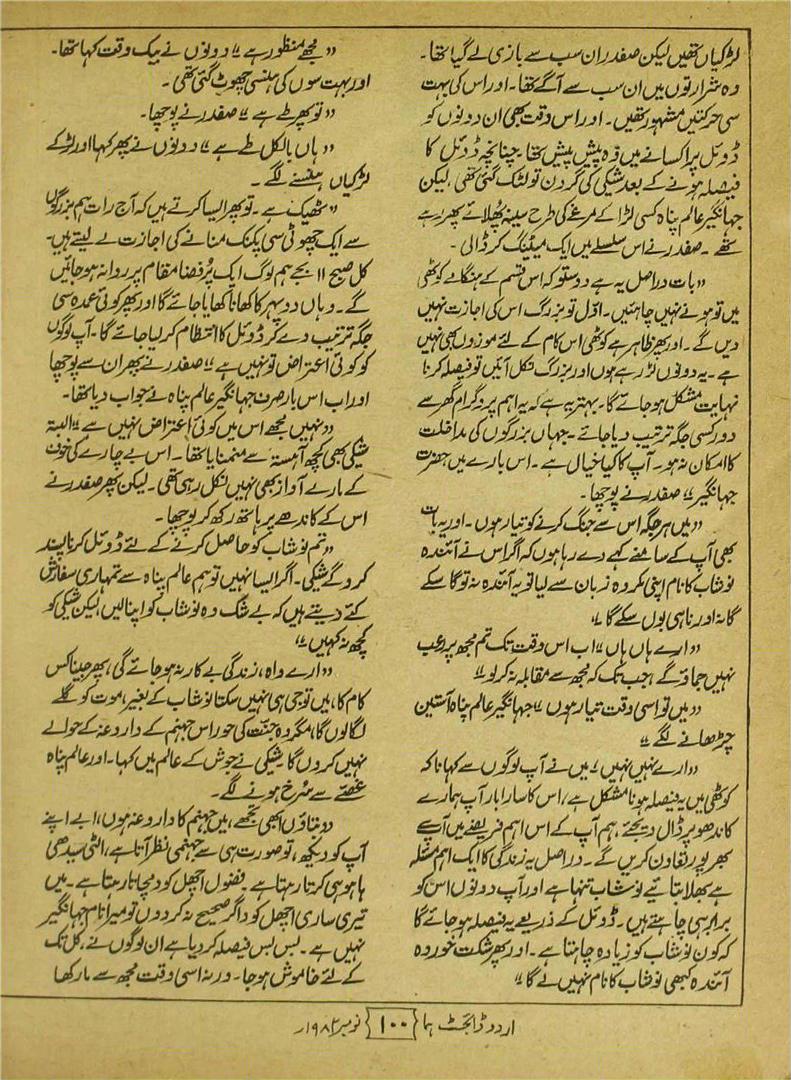 لڑکیاں تھیں لیکن صفدر ان سب سے بازی لے گیا تھا۔
وہ شرارتوں میں ان سب سے آگے تھا۔ اور اس کی بہت
سی حرکتیں مشہور تھیں۔ اور اس وقت بھی ان دونوں کو
ڈوئل پر اکسانے میں وہ پیش پیش تھا۔ چنانچہ ڈوئل کا
فیصلہ ہونے کے بعد شیکی کی گردن تو لٹک گئی تھی، لیکن
جہانگیر عالم پناہ کسی لڑاکے مرغے کی طرح سینہ پھلائے پھر رہے
تھے۔ صفدر نے اس سلسلے میں ایک میٹنگ کر ڈالی۔
"بات دراصل یہ ہے دوستو کہ اس قسم کے ہنگامے کوٹھی
میں تو ہونے نہیں چاہئیں۔ اوّل تو بزرگ اس کی اجازت نہیں
دیں گے۔ اور پھر ظاہر ہے کوٹھی اس کام کے لئے موزوں بھی نہیں
ہے۔ یہ دونوں لڑ رہے ہوں اور بزرگ نکل آئیں تو فیصلہ کرنا
نہایت مشکل ہو جائے گا۔ بہتر یہ ہے کہ یہ اہم پروگرام گھر سے
دور کسی جگہ ترتیب دیا جائے۔ جہاں بزرگوں کی مداخلت
کا امکان نہ ہو۔ آپ کا کیا خیال ہے۔ اس بارے میں حضرت
جہانگیر" صفدر نے پوچھا۔
"میں ہر جگہ اس سے جنگ کرنے کو تیار ہوں۔ اور یہ بات
بھی آپ کے سامنے کہے دے رہا ہوں کہ اگر اس نے آئندہ
نوشاب کا نام اپنی مکروہ زبان سے لیا تو یہ آئندہ نہ تو گا سکے
گا نہ اور نا ہی بول سکے گا"
"ارے ہاں ہاں" اب اس وقت تک تم مجھ پر رعب
نہیں جماؤ گے، جب تک کہ مجھ سے مقابلہ نہ کر لو"
"میں تو اسی وقت تیار ہوں" جہانگیر عالم پناہ آستین
چڑھانے لگے"
"ارے نہیں نہیں" میں نے آپ لوگوں سے کہا نا کہ
کوٹھی میں یہ فیصلہ ہونا مشکل ہے، اس کا سارا بار آپ ہمارے
کاندھو پر ڈال دیجئے، ہم آپ کے اس اہم فریضے میں آپ سے
بھرپور تعاون کریں گے۔ دراصل یہ زندگی کا ایک اہم مسئلہ
ہے بھلا بتائیے نوشاب تنہا ہے اور آپ دونوں اس کو
برابر ہی چاہتے ہیں۔ ڈوئل کے ذریعے یہ فیصلہ ہو جائے گا
کہ کون نوشاب کو زیادہ چاہتا ہے۔ اور پھر شکست خوردہ
آئندہ کبھی نوشاب کا نام نہیں لے گا"
"مجھے منظور ہے" دونوں نے بیک وقت کہا تھا۔
اور بہت سوں کی ہنسی چھوٹ گئی تھی۔
"تو پھر طے ہے" صفدر نے پوچھا۔
"ہاں بالکل طے ہے" دونوں نے پھر کہا اور لڑکے
لڑکیاں ہنسنے لگے۔
"ٹھیک ہے۔ تو پھر ایسا کرتے ہیں کہ آج رات ہم بزرگوں
سے ایک چھوٹی سی پکنک منانے کی اجازت لے لیتے ہیں۔
کل صبح ۱۱ بجے ہم لوگ ایک پُر فضا مقام پر روانہ ہو جائیں
گے۔ وہاں دوپہر کا کھانا کھایا جائے گا اور پھر کوئی عمدہ سی
جگہ ترتیب دے کر ڈوئل کا انتظام کر لیا جائے گا۔ آپ لوگوں
کو کوئی اعتراض تو نہیں ہے" صفدر نے پھر ان سے پوچھا
اور اب اس بار صرف جہانگیر عالم پناہ نے جواب دیا تھا۔
"نہیں مجھے اس میں کوئی اعتراض نہیں ہے" البتہ
شیکی بھی کچھ آہستہ سے منمنایا تھا۔ اس بے چارے کی خوف
کے مارے آواز بھی نہیں نکل رہی تھی۔ لیکن پھر صفدر نے
اس کے کاندھے پر ہاتھ رکھ کر پوچھا۔
"تم نوشاب کو حاصل کرنے کے لئے ڈوئل کرنا پسند
کرو گے شیکی۔ اگر ایسا نہیں تو ہم عالم پناہ سے تمہاری سفارش
کئے دیتے ہیں کہ بے شک وہ نوشاب کو اپنا لیں، لیکن شیکی کو
کچھ نہ کہیں"
"ارے واہ، زندگی بے کار نہ ہو جائے گی، پھر جینا کس
کام کا، میں تو جی ہی نہیں سکتا نوشاب کے بغیر، موت کو گلے
لگا لوں گا، مگر وہ جنّت کی حور اس جہنم کے داروغہ کے حوالے
نہیں کروں گا" شیکی نے جوش کے عالم میں کہا۔ اور عالم پناہ
غصّے سے سُرخ ہونے لگے۔
"بتاؤں ابھی تجھے، میں جہنم کا داروغہ ہوں، ابے اپنے
آپ کو دیکھ، تو صورت ہی سے جہنمی نظر آتا ہے، الٹی سیدھی
ہا ہو ہی کرتا رہتا ہے۔ فضول اچھل کود مچاتا رہتا ہے۔ میں
تیری ساری اچھل کود اگر صحیح نہ کر دوں تو میرا نام جہانگیر
نہیں ہے۔ بس بس فیصلہ کر دیا ہے ان لوگوں نے، کل تک
کے لئے خاموش ہو جا۔ ورنہ اسی وقت مجھ سے مار کھا
اردو ڈائجسٹ ہما {۱۰۰} نومبر ۱۹۸۲ء